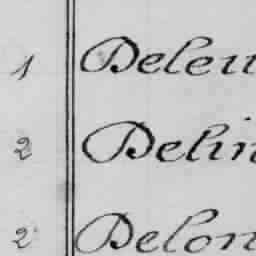 1 Deleu
2 Delin
2 Delon